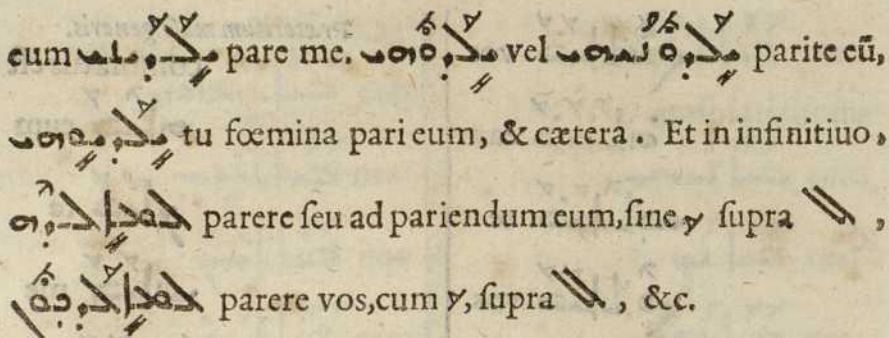 eum ܝܠܕܝܢܝ pare me. ܝܠܕܘܗܝ vel ܝܠܕܘܢܝܗܝ parite eū,
ܝܠܕܝܗܝ tu fœmina pari eum, & cætera. Et in infinitiuo,
ܠܡܐܠܕܗ parere ſeu ad pariendum eum, ſine ſupra ܠ,
ܠܡܐܠܕܟܘܢ parere vos, cum , ſupra ܠ, &c.